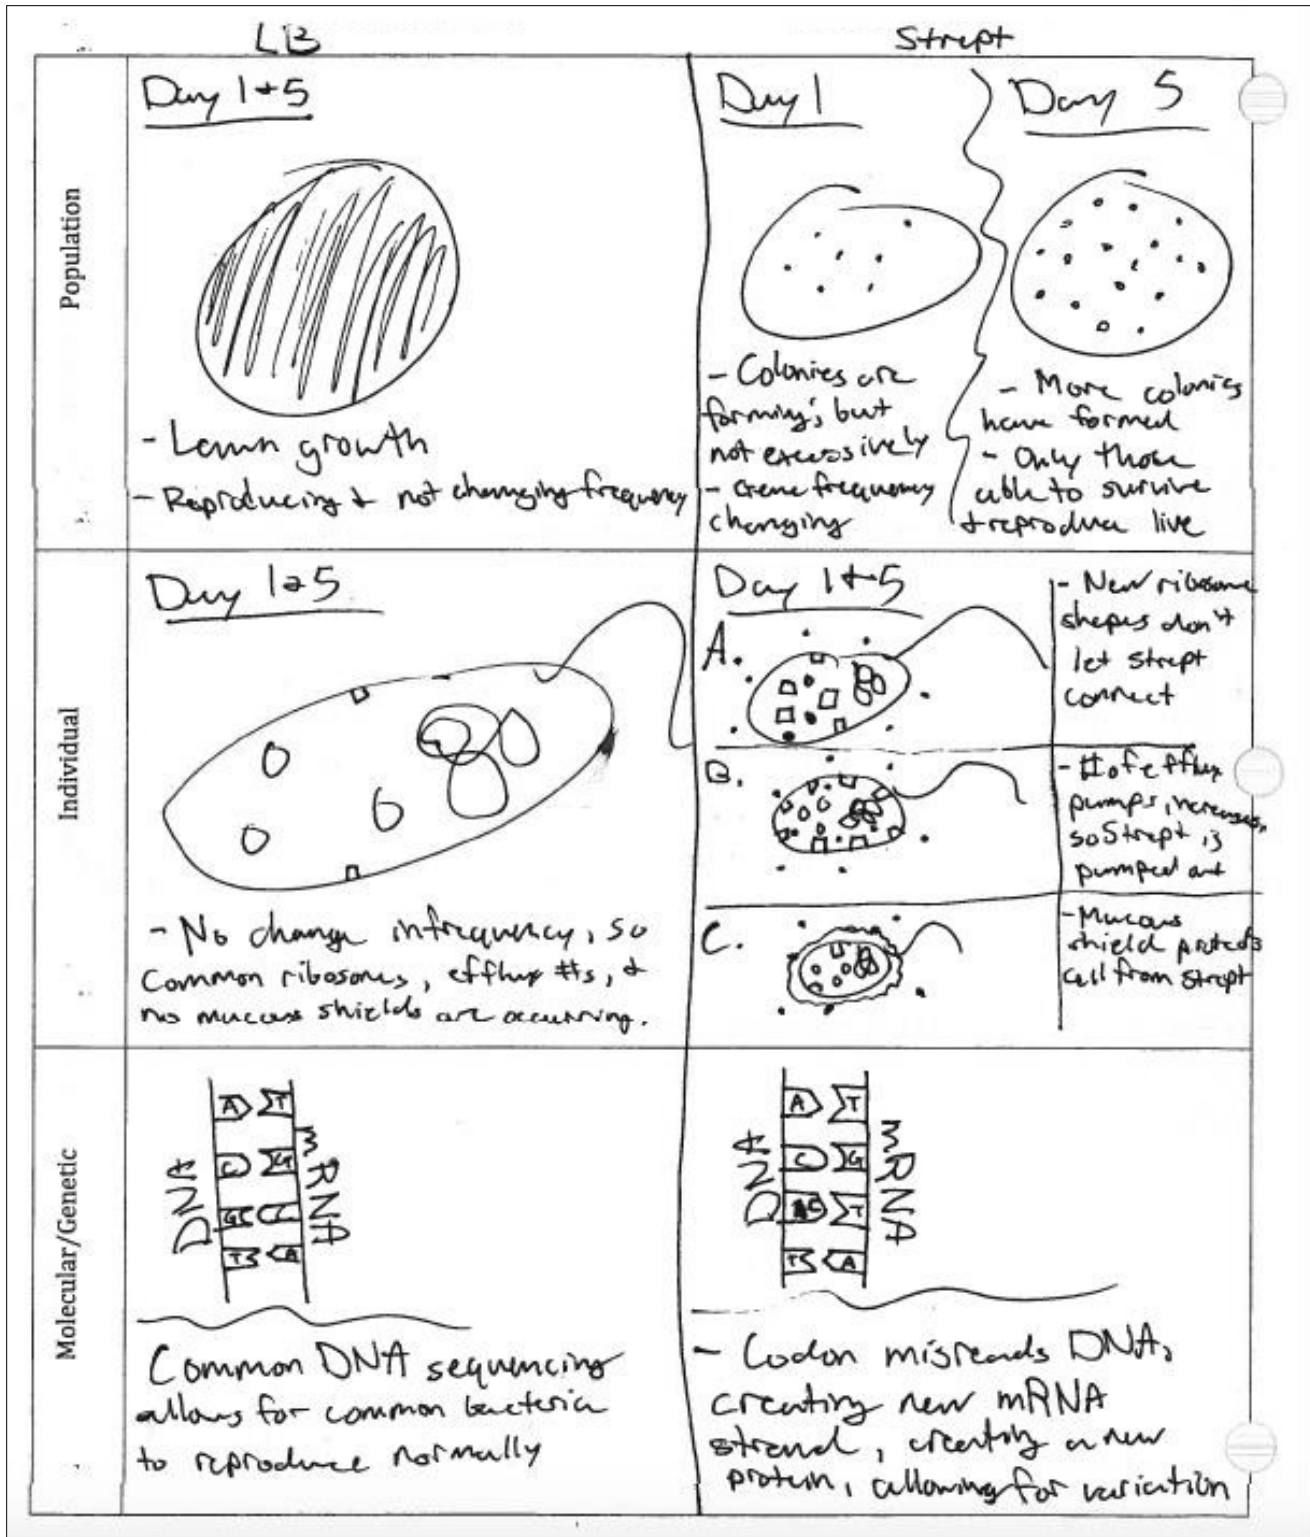 LB
Strept
Population
Day 1+5
- Lawn growth
- Reproducing + not changing frequency
Day 1
- Colonies are
forming, but
not excessively
- Gene frequency
changing
Day 5
- More colonies
have formed
- Only those
able to survive
+ reproduce live
Individual
Day 1+5
- No change in frequency, so
common ribosomes, efflux #s, +
no mucous shields are occurring.
Day 1+5
A.
- New ribosome
shapes don't
let strept
connect
B.
- # of efflux
pumps increases,
so Strept is
pumped out
C.
- Mucous
shield protects
cell from strept
Molecular/Genetic
DNA
A T
C G
G C
T A
mRNA
Common DNA sequencing
allows for common bacteria
to reproduce normally
DNA
A T
C G
T
T A
mRNA
- Codon misreads DNA,
creating new mRNA
strand, creating a new
protein, allowing for variation